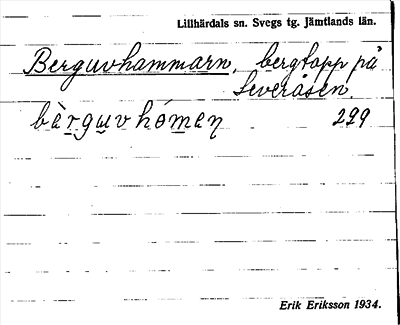 Lillhärdals sn. Svegs tg. Jämtlands län.
Berguvhammarn, bergtopp på
Severåsen.
bèrguvhómen̥ 299
Erik Eriksson 1934.